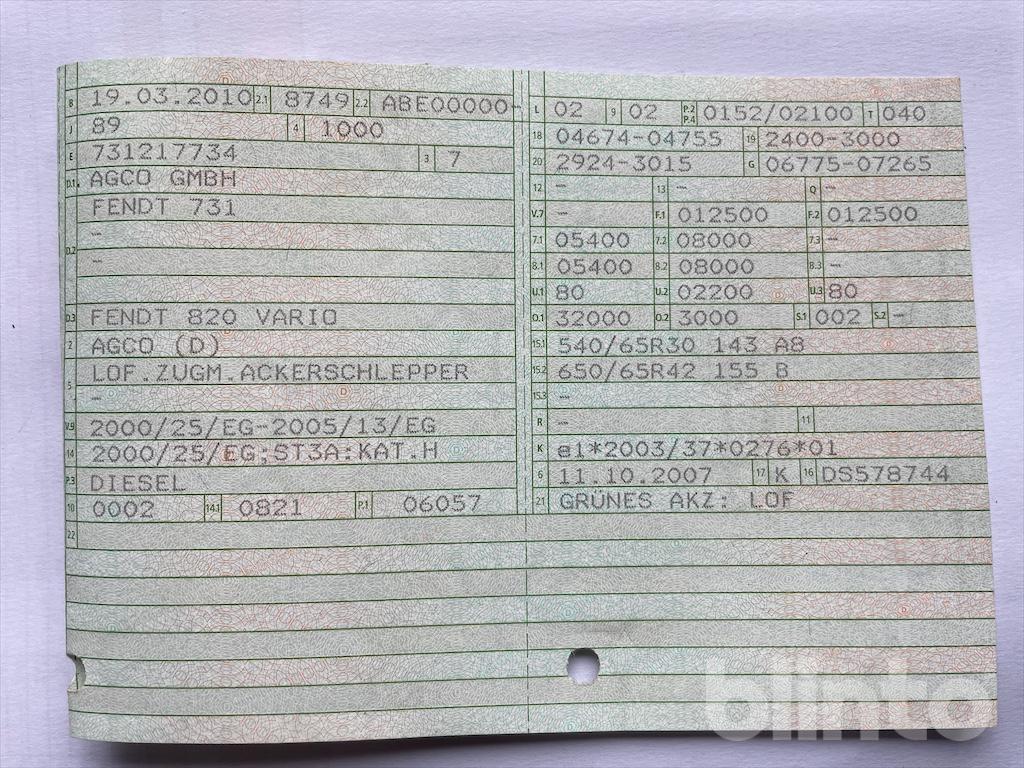 B 19.03.2010 2.1 8749 2.2 ABE00000--
J 89 4 1000
E 731217734 3 7
D.1 AGCO GMBH
FENDT 731
--
D.2 --
D.3 FENDT 820 VARIO
2 AGCO (D)
5 LOF.ZUGM.ACKERSCHLEPPER
--
V.9 2000/25/EG-2005/13/EG
14 2000/25/EG;ST3A:KAT.H
P.3 DIESEL
10 0002 14.1 0821 P.1 06057
22
L 02 9 02 P.2 P.4 0152/02100 T 040
18 04674-04755 19 2400-3000
20 2924-3015 G 06775-07265
12 -- 13 -- Q --
V.7 -- F.1 012500 F.2 012500
7.1 05400 7.2 08000 7.3 --
8.1 05400 8.2 08000 8.3 --
U.1 80 U.2 02200 U.3 80
O.1 32000 O.2 3000 S.1 002 S.2 -
15.1 540/65R30 143 A8
15.2 650/65R42 155 B
15.3 --
R -- 11
K e1*2003/37*0276*01
6 11.10.2007 17 K 16 DS578744
21 GRÜNES AKZ: LOF
blinto